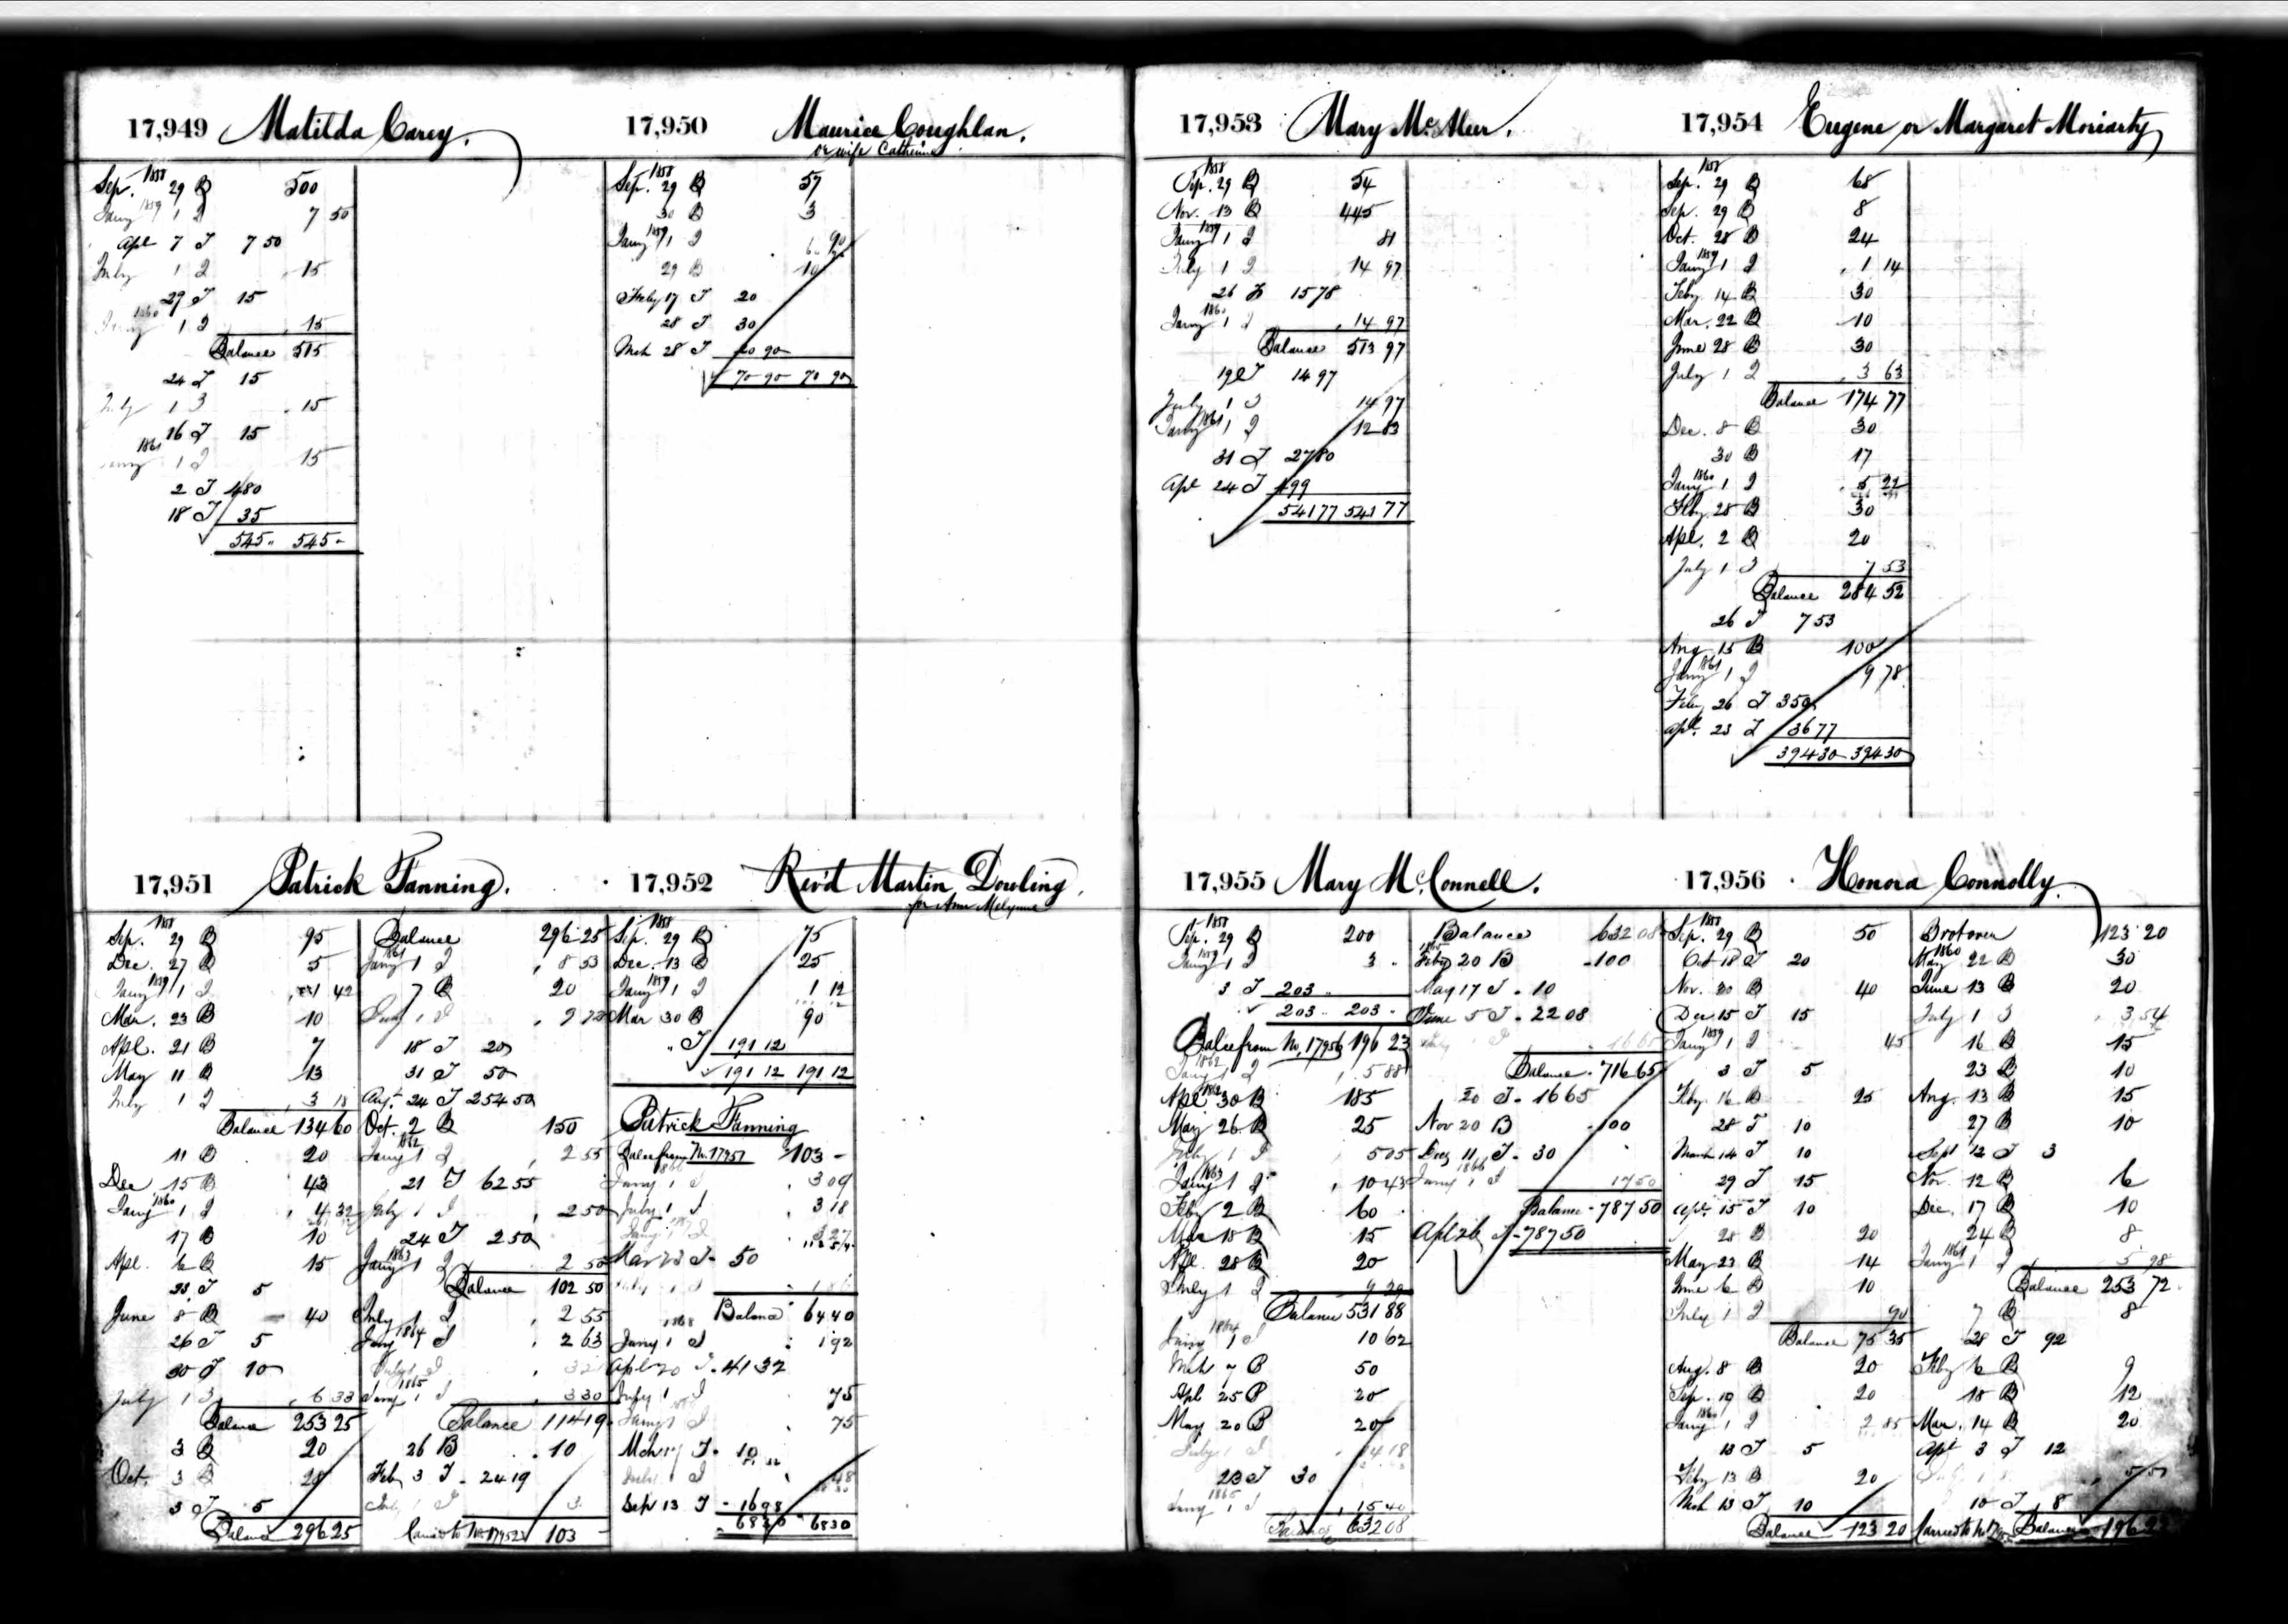 17,949 Matilda Carey.
1858
Sep. 29 B 500
Jany 1859 1 I 7 50
Apl 7 T 7 50
July 1 I 15
29 T 15
1860 1 I 15
Balance 515
24 T 15
July 1 I 15
16 T 15
1861 1 I 15
2 T 480
18 T 35
545 " 545 -
17,950 Maurice Coughlan.
or wife Catherine
1858
Sep. 29 B 57
30 B 3
Jany 1859 1 I 90
29 B 10
Feby 17 T 20
28 T 30
Mch 28 T 20 90
70 90 70 90
17,951 Patrick Fanning.
1858
Sep. 29 B 95
Dec. 27 B 5
Jany 1859 1 I 1 42
Mar. 23 B 10
Apl. 21 B 7
May 11 B 13
July 1 I 3 18
Balance 134 60
11 B 20
Dec 15 B 43
Jany 1860 1 I 4 32
17 B 10
Apl. 6 B 15
23 T 5
June 8 B 40
26 T 5
30 T 10
July 1 I 6 33
Balance 253 25
3 B 20
Oct. 3 B 28
3 T 5
Balance 296 25
Balance 296 25
Jany 1861 1 I 8 53
7 B 20
July 1 I
18 T 20
31 T 50
Aug. 24 T 254 50
Oct. 2 B 150
Jany 1862 1 I 2 55
21 T 62 55
July 1 I 2 50
24 T 2 50
Jany 1863 1 I 2 50
Balance 102 50
July 1 I 2 55
Jany 1864 I 2 63
July 1 I
Jany 1865 1 I 3 30
Balance 114 19
26 B 10
Feb 3 T 24 19
July 1 I 3
Carried to No. 17952 103 -
17,952 Rev'd Martin Dowling.
1858
Sep. 29 B 75
Dec. 13 B 25
Jany 1859 1 I 1 12
Mar 30 B 90
" T 191 12
191 12 191 12
Patrick Fanning
Balce from No. 17951 103 -
Jany 1866 1 I 3 09
July 1 I 3 18
Jany 1867 I 3 27
Mar 23 T 50
July 1 I
Balance 64 40
1868
Jany 1 I 1 92
Apl 20 T 41 32
July 1 I 75
Jany 1 I 75
Mch 17 T 10
July 1 I 48
Sep 13 T 16 98
68 30 68 30
17,953 Mary
1858
Sep. 29 B 54
Nov. 13 B 445
Jany 1859 1 I 81
July 1 I 14 97
26 T 15 78
Jany 1860 1 I 14 97
Balance 513 97
19 T 14 97
July 1 I 14 97
Jany 1861 1 I 12 83
31 T 27 80
Apl 24 T 499
541 77 541 77
17,954 Eugene or Margaret Moriarty
1858
Sep. 29 B 68
Sep. 29 B 8
Oct. 28 B 24
Jany 1859 1 I 1 14
Feby. 14 B 30
Mar. 22 B 10
June 28 B 30
July 1 I 3 63
Balance 174 77
Dec. 8 B 30
30 B 17
Jany 1860 1 I 5 22
Feby. 28 B 30
Apl. 2 B 20
July 1 I 7 53
Balance 284 52
26 T 7 53
Aug 15 B 100
Jany 1861 1 I 9 78
Feby 26 T 350
Apl. 23 T 36 77
394 30 394 30
17,955 Mary McConnell.
1858
Sep. 29 B 200
Jany 1859 1 I 3 "
3 T 203 "
203 " 203 -
Balce from No. 17956 196 23
Jany 1862 1 I 5 88
Apl 1862 30 B 185
May 26 B 25
July 1 I 5 05
Jany 1863 1 I 10 43
Feby 2 B 60
Mar 18 B 15
Apl. 28 B 20
July 1 I 9 29
Balance 531 88
Jany 1864 1 I 10 62
Mch 7 B 50
Apl 25 B 20
May 20 B 20
July 1 I 14 18
23 T 30
Jany 1865 1 I 15 40
Balance 632 08
Balance 632 08
1865
Feby 20 B 100
May 17 T 10
June 5 T 22 08
July 1 I 16 65
Balance 716 65
20 T 16 65
Nov 20 B 100
Dec 11 T 30
Jany 1866 1 I 17 50
Balance 787 50
Apl 26 T 787 50
17,956 Honora Connolly.
1858
Sep. 29 B 50
Oct 18 T 20
Nov. 30 B 40
Dec. 15 T 15
Jany 1859 1 I 45
3 T 5
Feby. 16 B 25
28 T 10
March 14 T 10
29 T 15
Apl. 15 T 10
28 B 20
May 23 B 14
June 6 B 10
July 1 I 90
Balance 75 35
Aug. 8 B 20
Sep. 19 B 20
Jany 1860 1 I 2 85
13 T 5
Feby 13 B 20
Mch 13 T 10
Balance 123 20
Brot over 123 20
1860
May 22 B 30
June 13 B 20
July 1 I 3 54
16 B 15
23 B 10
Aug. 13 B 15
27 B 10
Sept 12 T 3
Nov. 12 B 6
Dec. 17 B 10
24 B 8
Jany 1861 1 I 5 98
Balance 253 72
7 B 8
28 T 92
Feby 6 B 9
18 B 12
Mar. 14 B 20
Apl 3 T 12
10 T 8
Balance 196 23